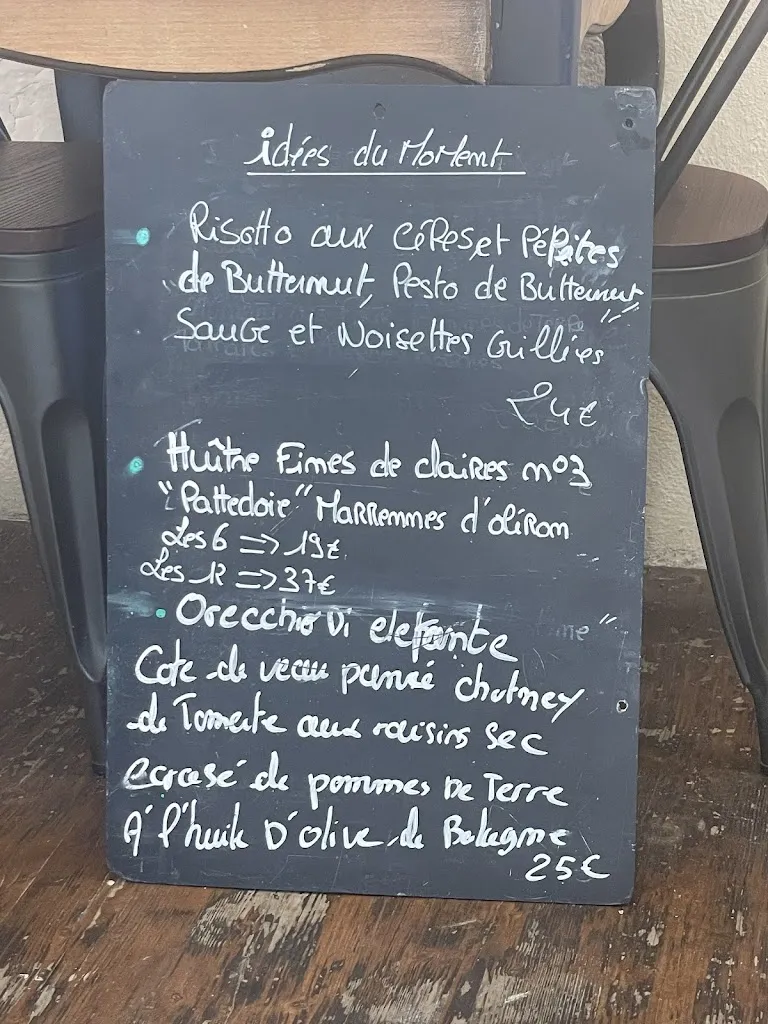 idées du Moment
Risotto aux cèPes et Pépites
de Butternut, Pesto de Butternut
Sauge et Noisettes Grillées
24€
Huître Fines de claires n°3
"Pattedoie" Marremmes d'oléRon
Les 6 => 19€
Les 12 => 37€
Orecchio Di elefante
Cote de veau pané chutney
de Tomate aux raisins sec
ecrasé de pommes De Terre
A l'huile D'olive de Balagne
25€